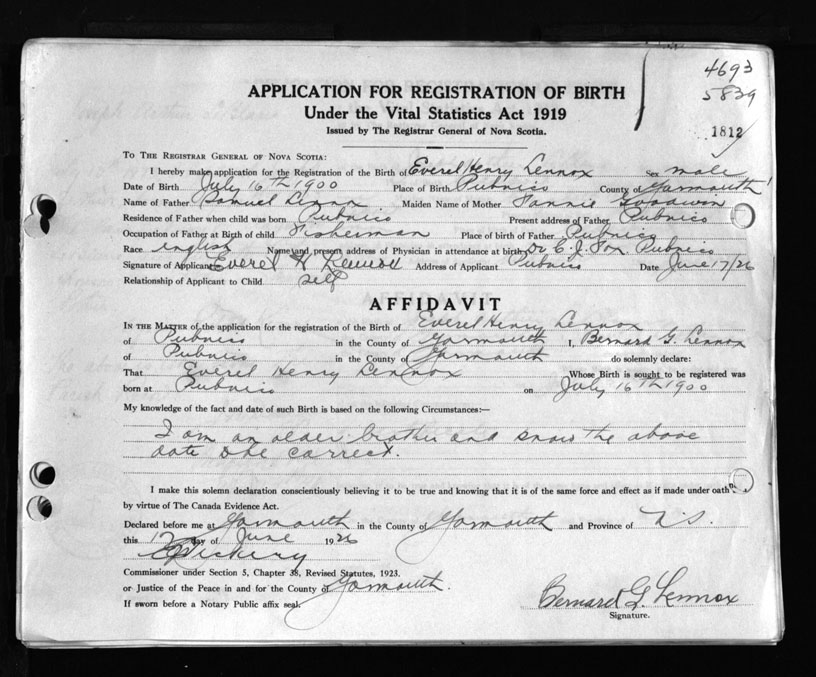 4693
5839
1812
APPLICATION FOR REGISTRATION OF BIRTH
Under the Vital Statistics Act 1919
Issued by The Registrar General of Nova Scotia.
TO THE REGISTRAR GENERAL OF NOVA SCOTIA:
I hereby make application for the Registration of the Birth of Everel Henry Lennox Sex male
Date of Birth July 16th 1900 Place of Birth Pubnico County of Yarmouth
Name of Father Samuel Lennox Maiden Name of Mother Fannie Goodwin
Residence of Father when child was born Pubnico Present address of Father Pubnico
Occupation of Father at Birth of child Fisherman Place of birth of Father Pubnico
Race English Name and present address of Physician in attendance at birth Dr C. J. Fox Pubnico
Signature of Applicant Everel H Lennox Address of Applicant Pubnico Date June 17/26
Relationship of Applicant to Child self
AFFIDAVIT
IN THE MATTER of the application for the registration of the Birth of Everel Henry Lennox
of Pubnico in the County of Yarmouth I, Bernard G. Lennox
of Pubnico in the County of Yarmouth do solemnly declare:
That Everel Henry Lennox Whose Birth is sought to be registered was
born at Pubnico on July 16th 1900
My knowledge of the fact and date of such Birth is based on the following Circumstances:—
I am an older brother and know the above
date are correct.
I make this solemn declaration conscientiously believing it to be true and knowing that it is of the same force and effect as if made under oath
by virtue of The Canada Evidence Act.
Declared before me at Yarmouth in the County of Yarmouth and Province of N.S.
this 17 day of June 1926
Commissioner under Section 5, Chapter 38, Revised Statutes, 1923.
or Justice of the Peace in and for the County of Yarmouth.
If sworn before a Notary Public affix seal.
Bernard G. Lennox
Signature.